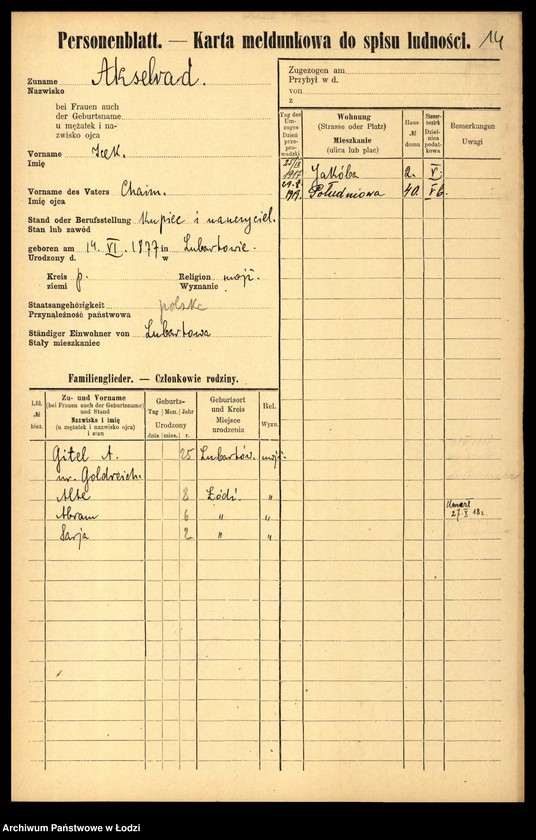 Personenblatt. — Karta meldunkowa do spisu ludności. 14
Zuname Akselrad.
Nazwisko
bei Frauen auch
der Geburtsname
u mężatek i na-
zwisko ojca
Vorname Icek.
Imię
Vorname des Vaters Chaim.
Imię ojca
Stand oder Berufsstellung Kupiec i nauczyciel.
Stan lub zawód
geboren am 14. VI. 1877 in Lubartowie.
Urodzony d. w
Kreis p. Religion mojż.
ziemi Wyznanie
Staatsangehörigkeit polska
Przynależność państwowa
Ständiger Einwohner von Lubartowa
Stały mieszkaniec
Zugezogen am
Przybył w d.
von
z
Tag des Um-zuges Dzień prze-prowadzki
Wohnung (Strasse oder Platz) Mieszkanie (ulica lub plac)
Haus № domu
Steuer-bezirk Dziel-nica podat-kowa
Bemerkungen Uwagi
1917 Jakóba 2. V.
1919. Południowa 40. V b.
Familienglieder. — Członkowie rodziny.
Lfd. № bież.
Zu- und Vorname (bei Frauen auch der Geburtsname) und Stand Nazwisko i imię (u mężatek i nazwisko ojca) i stan
Geburts- Tag Mon. Jahr Urodzony dnia mies. r.
Geburtsort und Kreis Miejsce urodzenia
Rel. Wyzn.
Gitel A. 25 Lubartów. mojż.
ur. Goldreich.
Alte 8 Łódź. "
Abram 6 " " Umarł 27. X 18 r.
Sarja 2 " "
Archiwum Państwowe w Łodzi